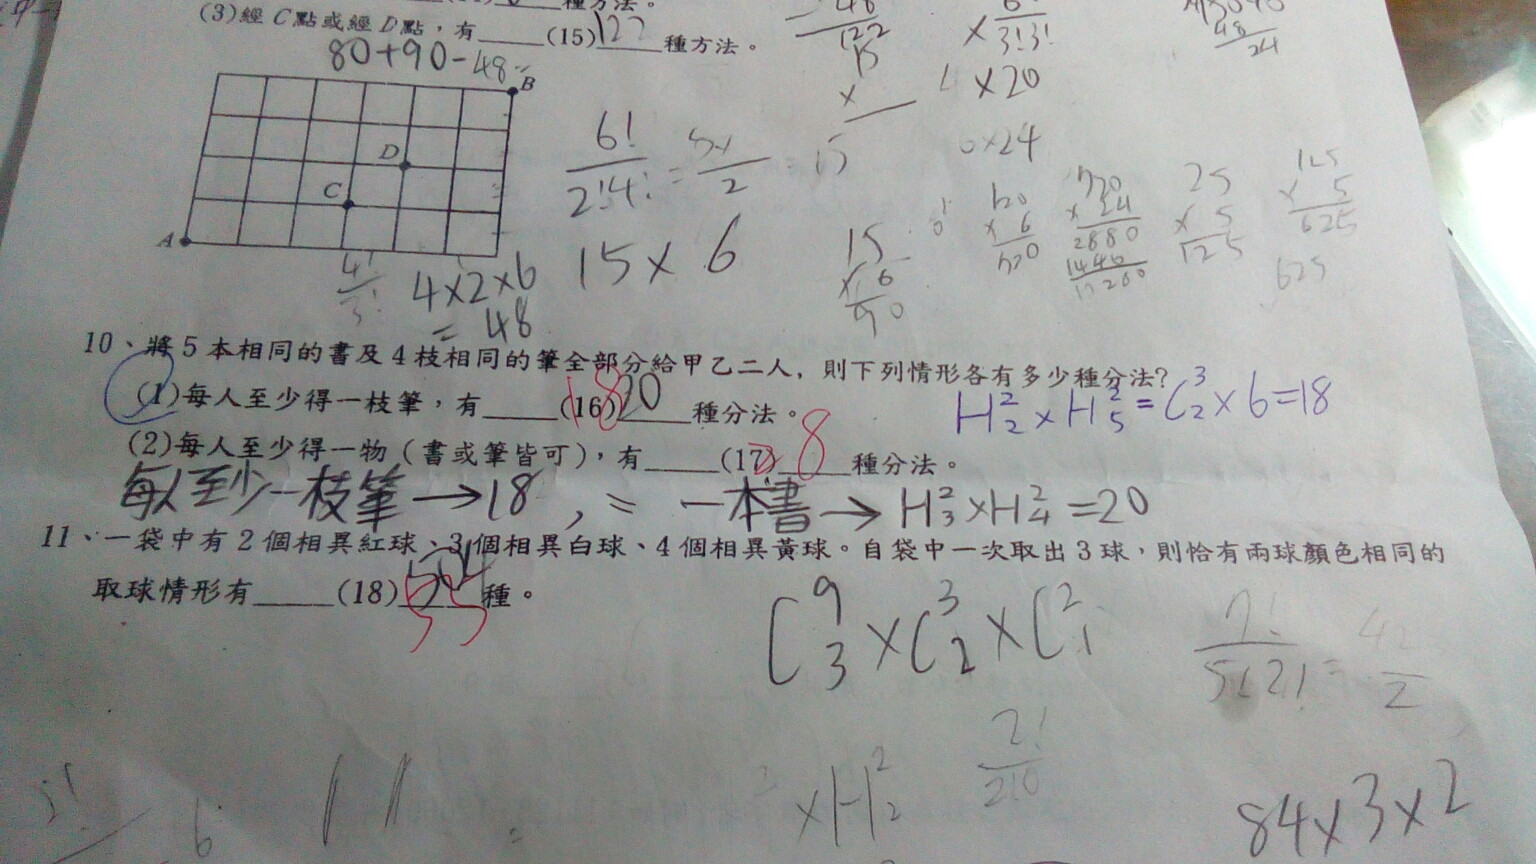 種方法。
(3)經C點或經D點，有____(15)122種方法。
80+90-48=
B
D
C
A
4!
3!
4×2×6
=48
6!
2!4!
2
=15
15×6
15
×6
90
122
6!
×3!3!
4×20
6×24
120
×6
720
720
×24
2880
25
×5
125
125
×5
625
625
10、將5本相同的書及4枝相同的筆全部分給甲乙二人，則下列情形各有多少種分法?
(1)每人至少得一枝筆，有____(16)18 20種分法。
H²₂×H²₅=C³₂×6=18
(2)每人至少得一物（書或筆皆可），有____(17)28種分法。
每人至少一枝筆→18，= 一本書→H²₃×H²₄=20
11、一袋中有2個相異紅球、3個相異白球、4個相異黃球。自袋中一次取出3球，則恰有兩球顏色相同的
取球情形有____(18)55種。
C⁹₃×C³₂×C²₁
7!
5!2!
=
42
2
2!
2!0
×H²₂
84×3×2